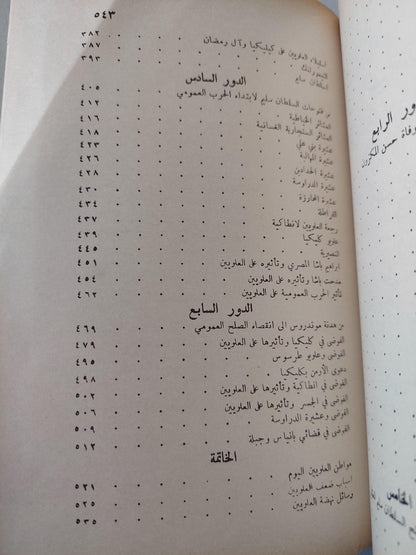 ٥٤٣
استيلاء العلويين على كيليكيا وآل رمضان ٣٨٢
التيمورلنك ٣٨٧
السلطان سليم ٣٩٣
الدور السادس
من فتوحات السلطان سليم لابتداء الحرب العمومي ٤٠٥
العشائر الخياطية ٤١٢
العشائر السنجارية الغسانية ٤١٦
عشيرة بني علي ٤١٨
عشيرة المهالبة
عشيرة الحدادين ٤٢٦
عشيرة الدراوسة ٤٢٨
عشيرة المحارزة ٤٣٠
القراطلة ٤٣٤
رجعة العلويين لانطاكية ٤٣٧
علويو كليكيا ٤٣٩
النصيرية ٤٤٥
ابراهيم باشا المصري وتأثيره على العلويين ٤٥١
مدحت باشا وتأثيره على العلويين ٤٥٤
تأثير الحرب العمومية على العلويين ٤٦٢
الدور السابع
من هدنة موندروس الى انقضاء الصلح العمومي ٤٦٩
الفوضى في كليكيا وتأثيرها على العلويين ٤٧٩
الفوضى وعلويو طرسوس ٤٩٥
دعوى الأرمن بكليكيا ٤٩٨
الفوضى في انطاكية وتأثيرها على العلويين ٥٠٢
الفوضى في الجسر وتأثيرها على العلويين ٥٠٦
الفوضى وعشيرة الدراوسة ٥٠٩
الفوضى في قضائي بانياس وجبلة ٥١٢
الخاتمة
مواطن العلويين اليوم ٥٢١
اسباب ضعف العلويين ٥٢٥
وسائل نهضة العلويين ٥٣٥
ور الرابع
وفاة حسن المكزون
الخامس